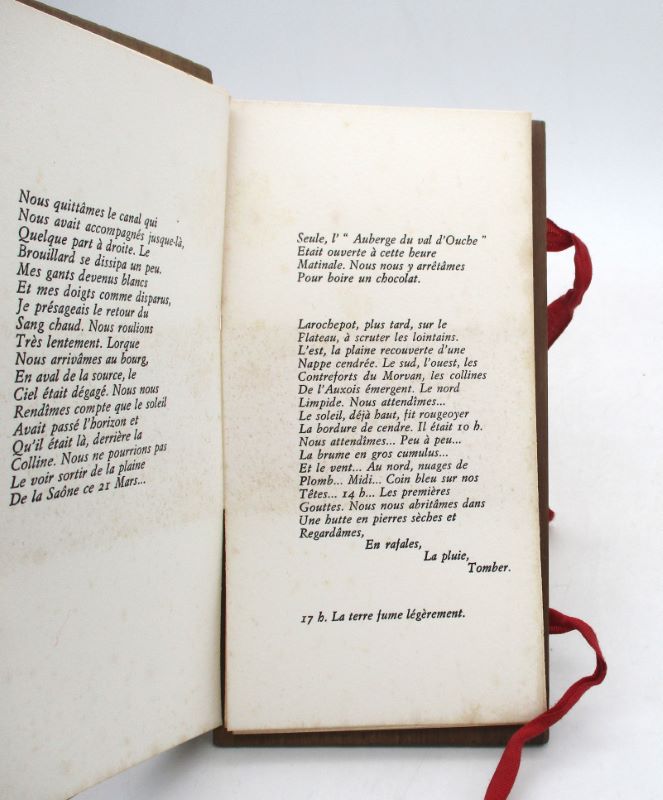 Nous quittâmes le canal qui
Nous avait accompagnés jusque-là,
Quelque part à droite. Le
Brouillard se dissipa un peu.
Mes gants devenus blancs
Et mes doigts comme disparus,
Je présageais le retour du
Sang chaud. Nous roulions
Très lentement. Lorque
Nous arrivâmes au bourg,
En aval de la source, le
Ciel était dégagé. Nous nous
Rendîmes compte que le soleil
Avait passé l'horizon et
Qu'il était là, derrière la
Colline. Nous ne pourrions pas
Le voir sortir de la plaine
De la Saône ce 21 Mars...
Seule, l' " Auberge du val d'Ouche "
Etait ouverte à cette heure
Matinale. Nous nous y arrêtâmes
Pour boire un chocolat.
Larochepot, plus tard, sur le
Plateau, à scruter les lointains.
L'est, la plaine recouverte d'une
Nappe cendrée. Le sud, l'ouest, les
Contreforts du Morvan, les collines
De l'Auxois émergent. Le nord
Limpide. Nous attendîmes...
Le soleil, déjà haut, fit rougeoyer
La bordure de cendre. Il était 10 h.
Nous attendîmes... Peu à peu...
La brume en gros cumulus...
Et le vent... Au nord, nuages de
Plomb... Midi... Coin bleu sur nos
Têtes... 14 h... Les premières
Gouttes. Nous nous abritâmes dans
Une hutte en pierres sèches et
Regardâmes,
En rafales,
La pluie,
Tomber.
17 h. La terre fume légèrement.